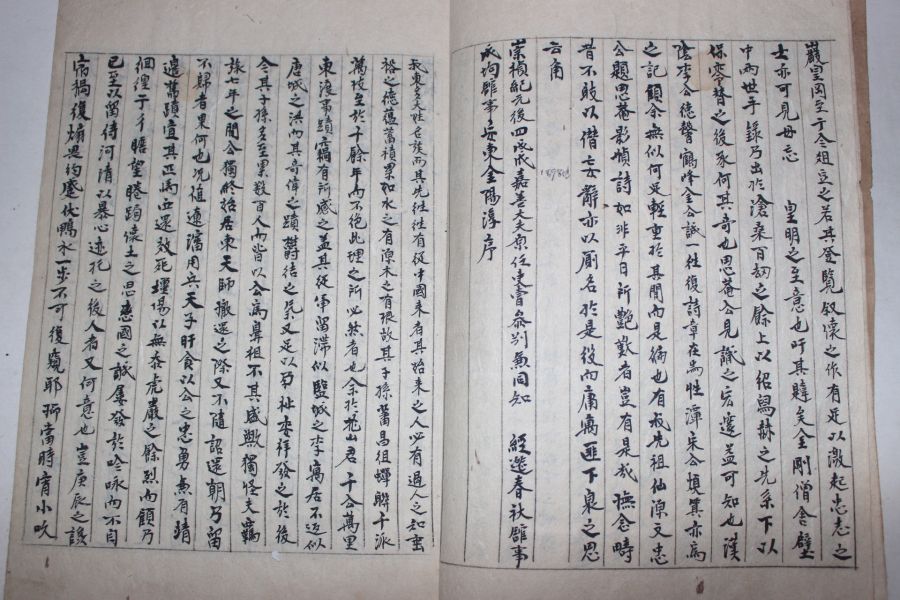 巖皇岡至于今俎豆之若其登覽叙懷之作有足以激起忠志之
士亦可見毋忘 皇明之至意也吁其韙矣金剛僧舍壁
中兩世手錄乃出於滄桑百劫之餘上以紹寫之先系下以
保零替之後承何其奇也思菴入見識之宏邃益可知也漢
陰李公德馨鶴峰金公誠一往復詩章在焉性潭宋公塤箕亦爲
之記顧余無似何足輕重於其間而是役也有我先祖仙源文忠
公題思菴影幀詩如非平日所艶歎者豈有是哉撫念疇
昔不敢以僭妄辭亦以厠名於是後而庸寓匪下泉之思
云甬
崇禎紀元後四戊戌嘉善大夫原任吏曹參判兼同知 經筵春秋館事
成均館事安東金陽淳序
我東多大姓世族而其先往往有從中國來者其始來之人必有過人之知蛮
裕之德蘊蓄積累如水之有源木之有根故其子孫蕃昌徂蟬聯十派
萬枝至於千餘年而不絶此理之所必然者也余於花山君千公萬里
東渡事蹟竊有所感之盖其從軍留滯似監城之李寓居不返似
唐城之洪而其奇偉之蹟欝結之氣又足以孕祉委祥發之於後
今其子孫多至累數百人而皆以公爲鼻祖不其盛歟獨怪夫羈
旅七年之間公獨終始居東天師撤還之際又不隨詔還朝乃留
不歸者果何也况値遼瀋用兵天子旰食以公之忠勇兼有靖
邊舊蹟宜其匹馬西還效死壃場以無忝虎巖之餘烈而顧乃
徊徨于 瞻望睠跼懷土之思悲國之誠屢發於吟咏而不自
已至以留待河淸以暴心迹托之後人者又何意也豈庚辰之諺
宿禍復煽畏約蹙伏鴨水一步不可復窺耶抑當時宵小吹